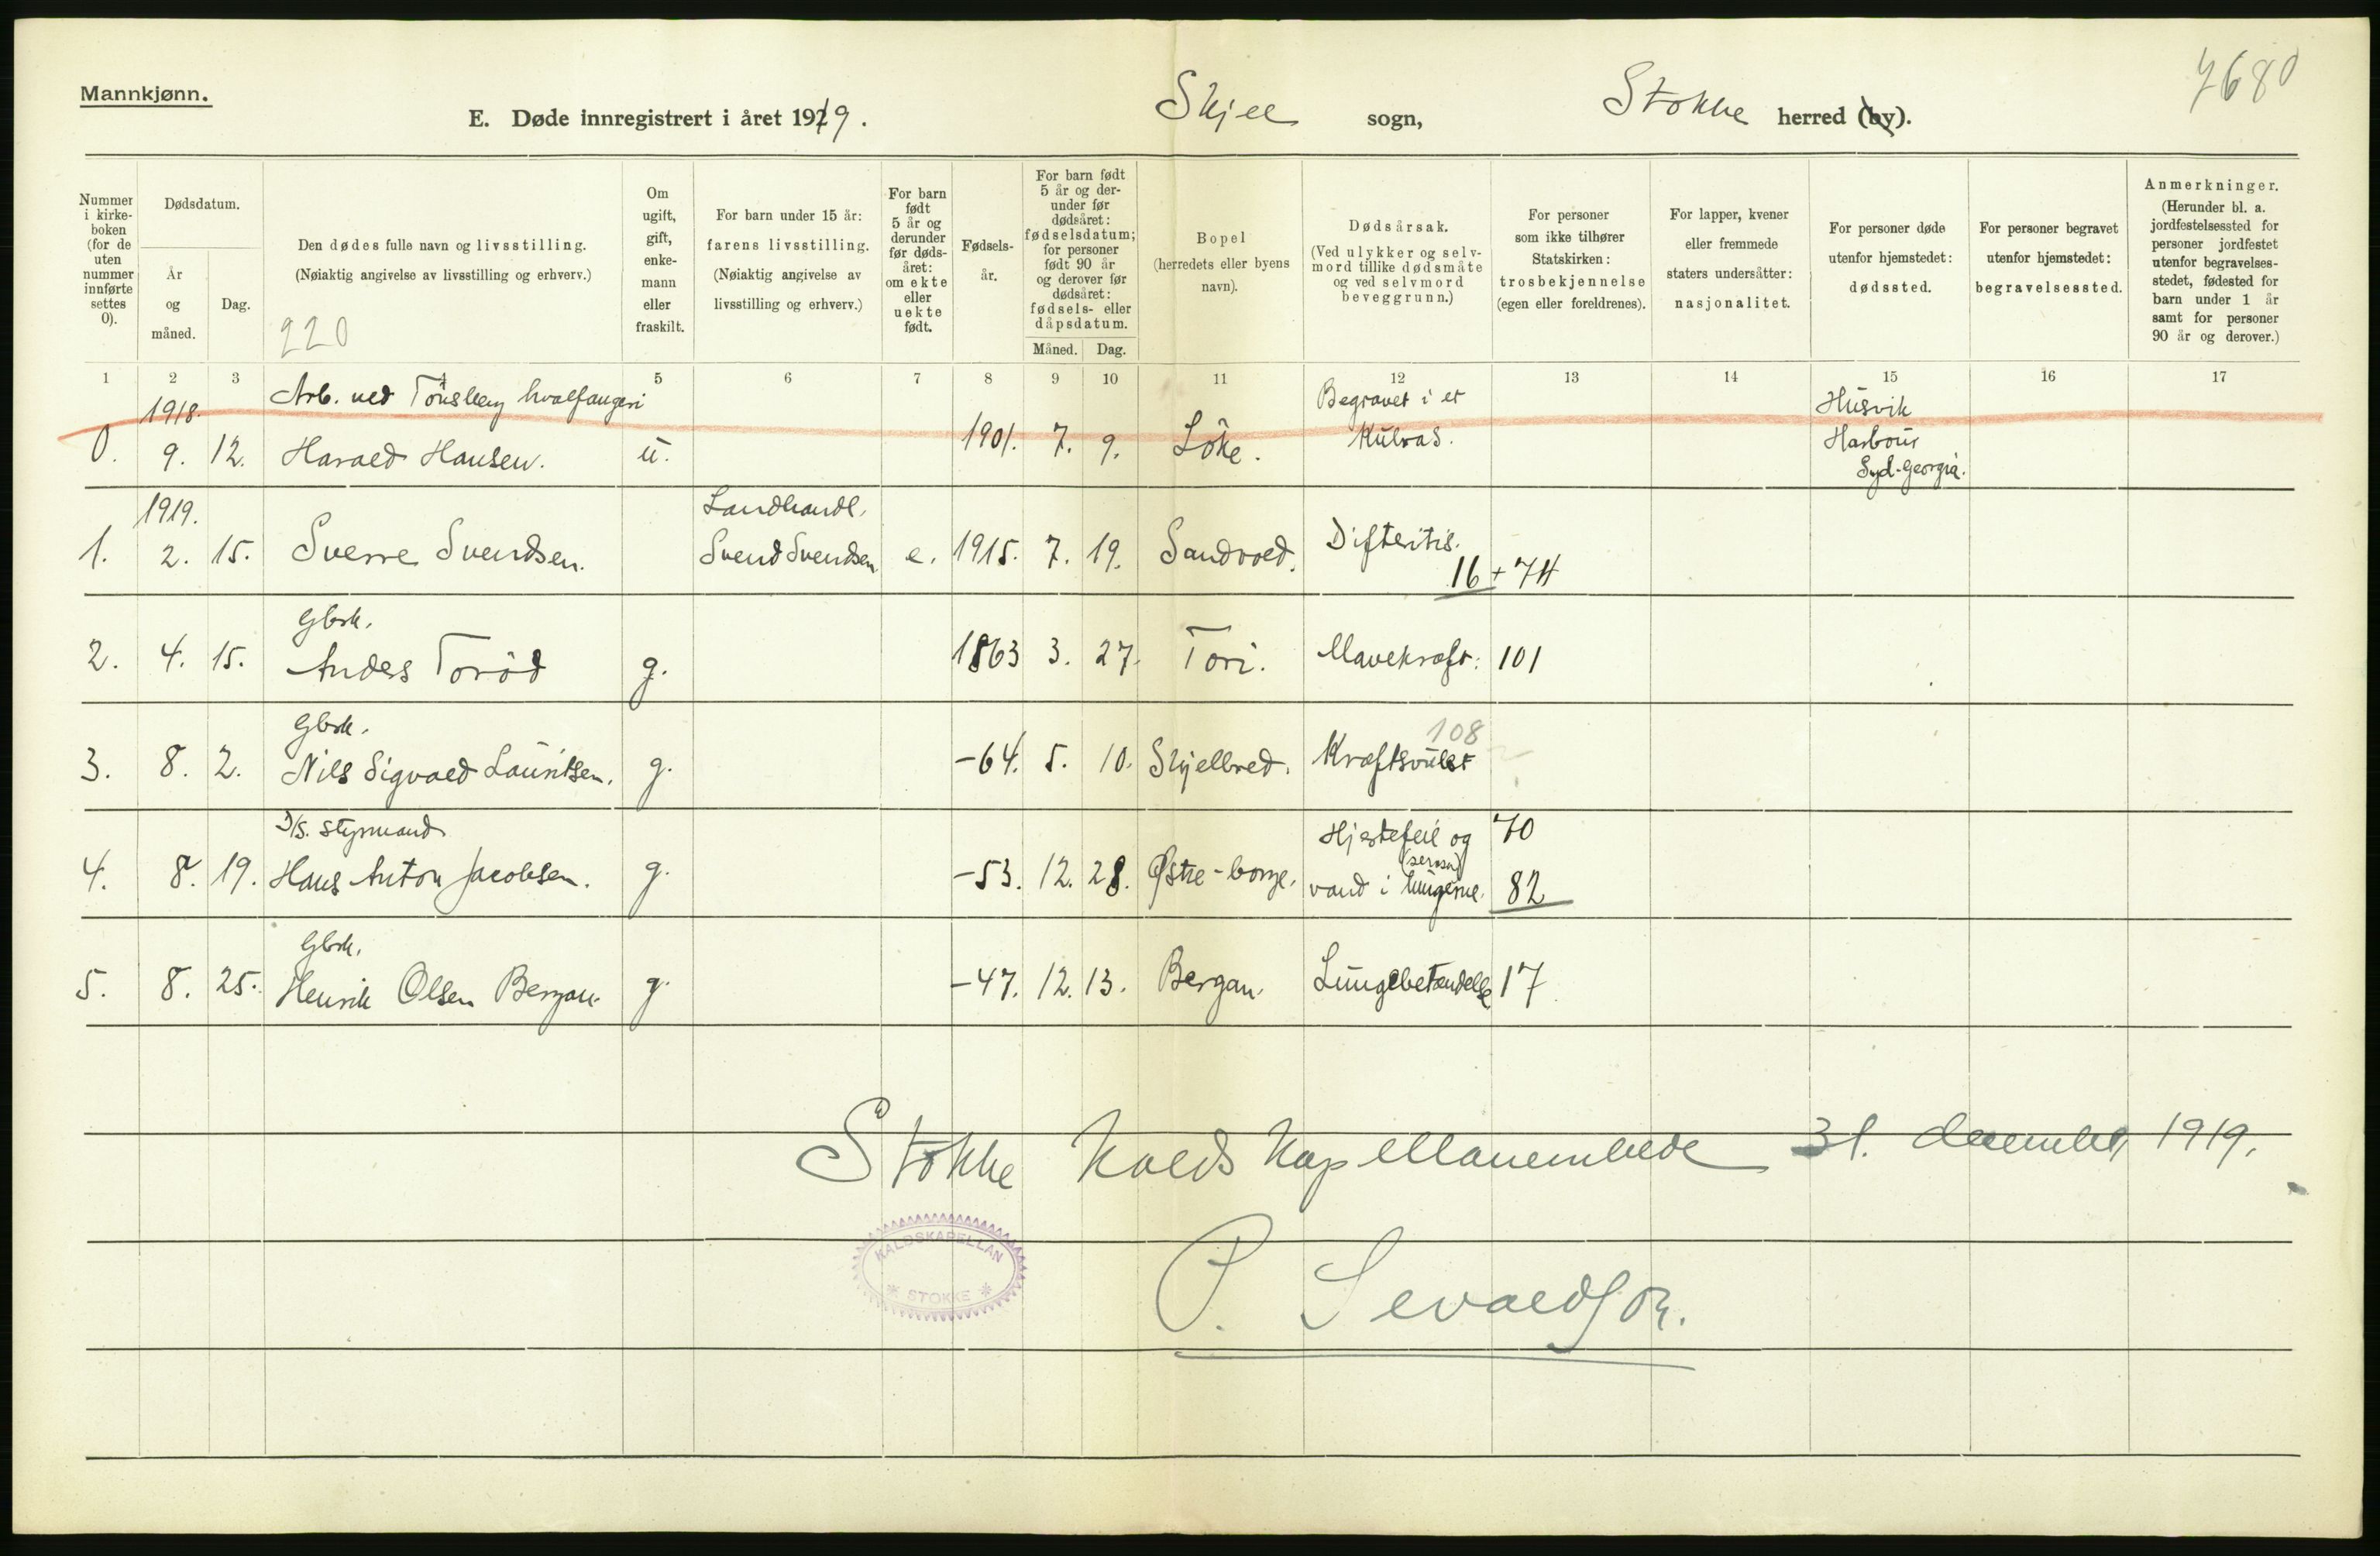 Mannkjønn.
7680
E. Døde innregistrert i året 1919. Skjee sogn, Stokke herred (by).
Nummer i kirke-boken (for de uten nummer innførte settes 0).
Dødsdatum.
År og måned.
Dag.
Den dødes fulle navn og livsstilling.
(Nøiaktig angivelse av livsstilling og erhverv.)
220
Om ugift, gift, enke-mann eller fraskilt.
For barn under 15 år:
farens livsstilling.
(Nøiaktig angivelse av
livsstilling og erhverv.)
For barn født 5 år og derunder før døds-året: om ekte eller uekte født.
Fødsels-år.
For barn født 5 år og der-under før dødsåret: fødselsdatum; for personer født 90 år og derover før dødsåret: fødsels- eller dåpsdatum.
Måned. Dag.
Bopel
(herredets eller byens
navn).
Dødsårsak.
(Ved ulykker og selv-
mord tillike dødsmåte
og ved selvmord
beveggrunn.)
For personer
som ikke tilhører
Statskirken:
trosbekjennelse
(egen eller foreldrenes).
For lapper, kvener
eller fremmede
staters undersåtter:
nasjonalitet.
For personer døde
utenfor hjemstedet:
dødssted.
For personer begravet
utenfor hjemstedet:
begravelsessted.
Anmerkninger.
(Herunder bl. a.
jordfestelsessted for
personer jordfestet
utenfor begravelses-
stedet, fødested for
barn under 1 år
samt for personer
90 år og derover.)
1 2 3 4 5 6 7 8 9 10 11 12 13 14 15 16 17
1918. Arb. ved Tønsberg hvalfangeri Begravet i et Husvik
0. 9. 12. Harald Hansen. u. 1901. 7. 9. Løke. Kulras. Harbour
Syd-Georgia.
1919. Landhandl.
1. 2. 15. Sverre Svendsen. Svend Svendsen e. 1915. 7. 19. Sandvoed. Difteritis.
16 + 74
Gbrk.
2. 4. 15. Anders Torød g. 1863 3. 27. Tori. Mavekræft: 101
Gbrk. 108
3. 8. 2. Nils Sigvald Lauritsen. g. -64. 5. 10. Skjelbred. Kræftsvulst
D/S. styrmand Hjertefeil og 70
(serosa)
4. 8. 19. Hans Anton Jacobsen. g. -53. 12. 28. Østre-borge. vand i lungerne. 82
Gbrk.
5. 8. 25. Henrik Olsen Bergan. g. -47. 12. 13. Bergan. Lungebetændelse 17
Stokke Kalds Kapellanembede 31. december 1919.
KALDSKAPELLAN
* STOKKE *
P. Sevaldson.